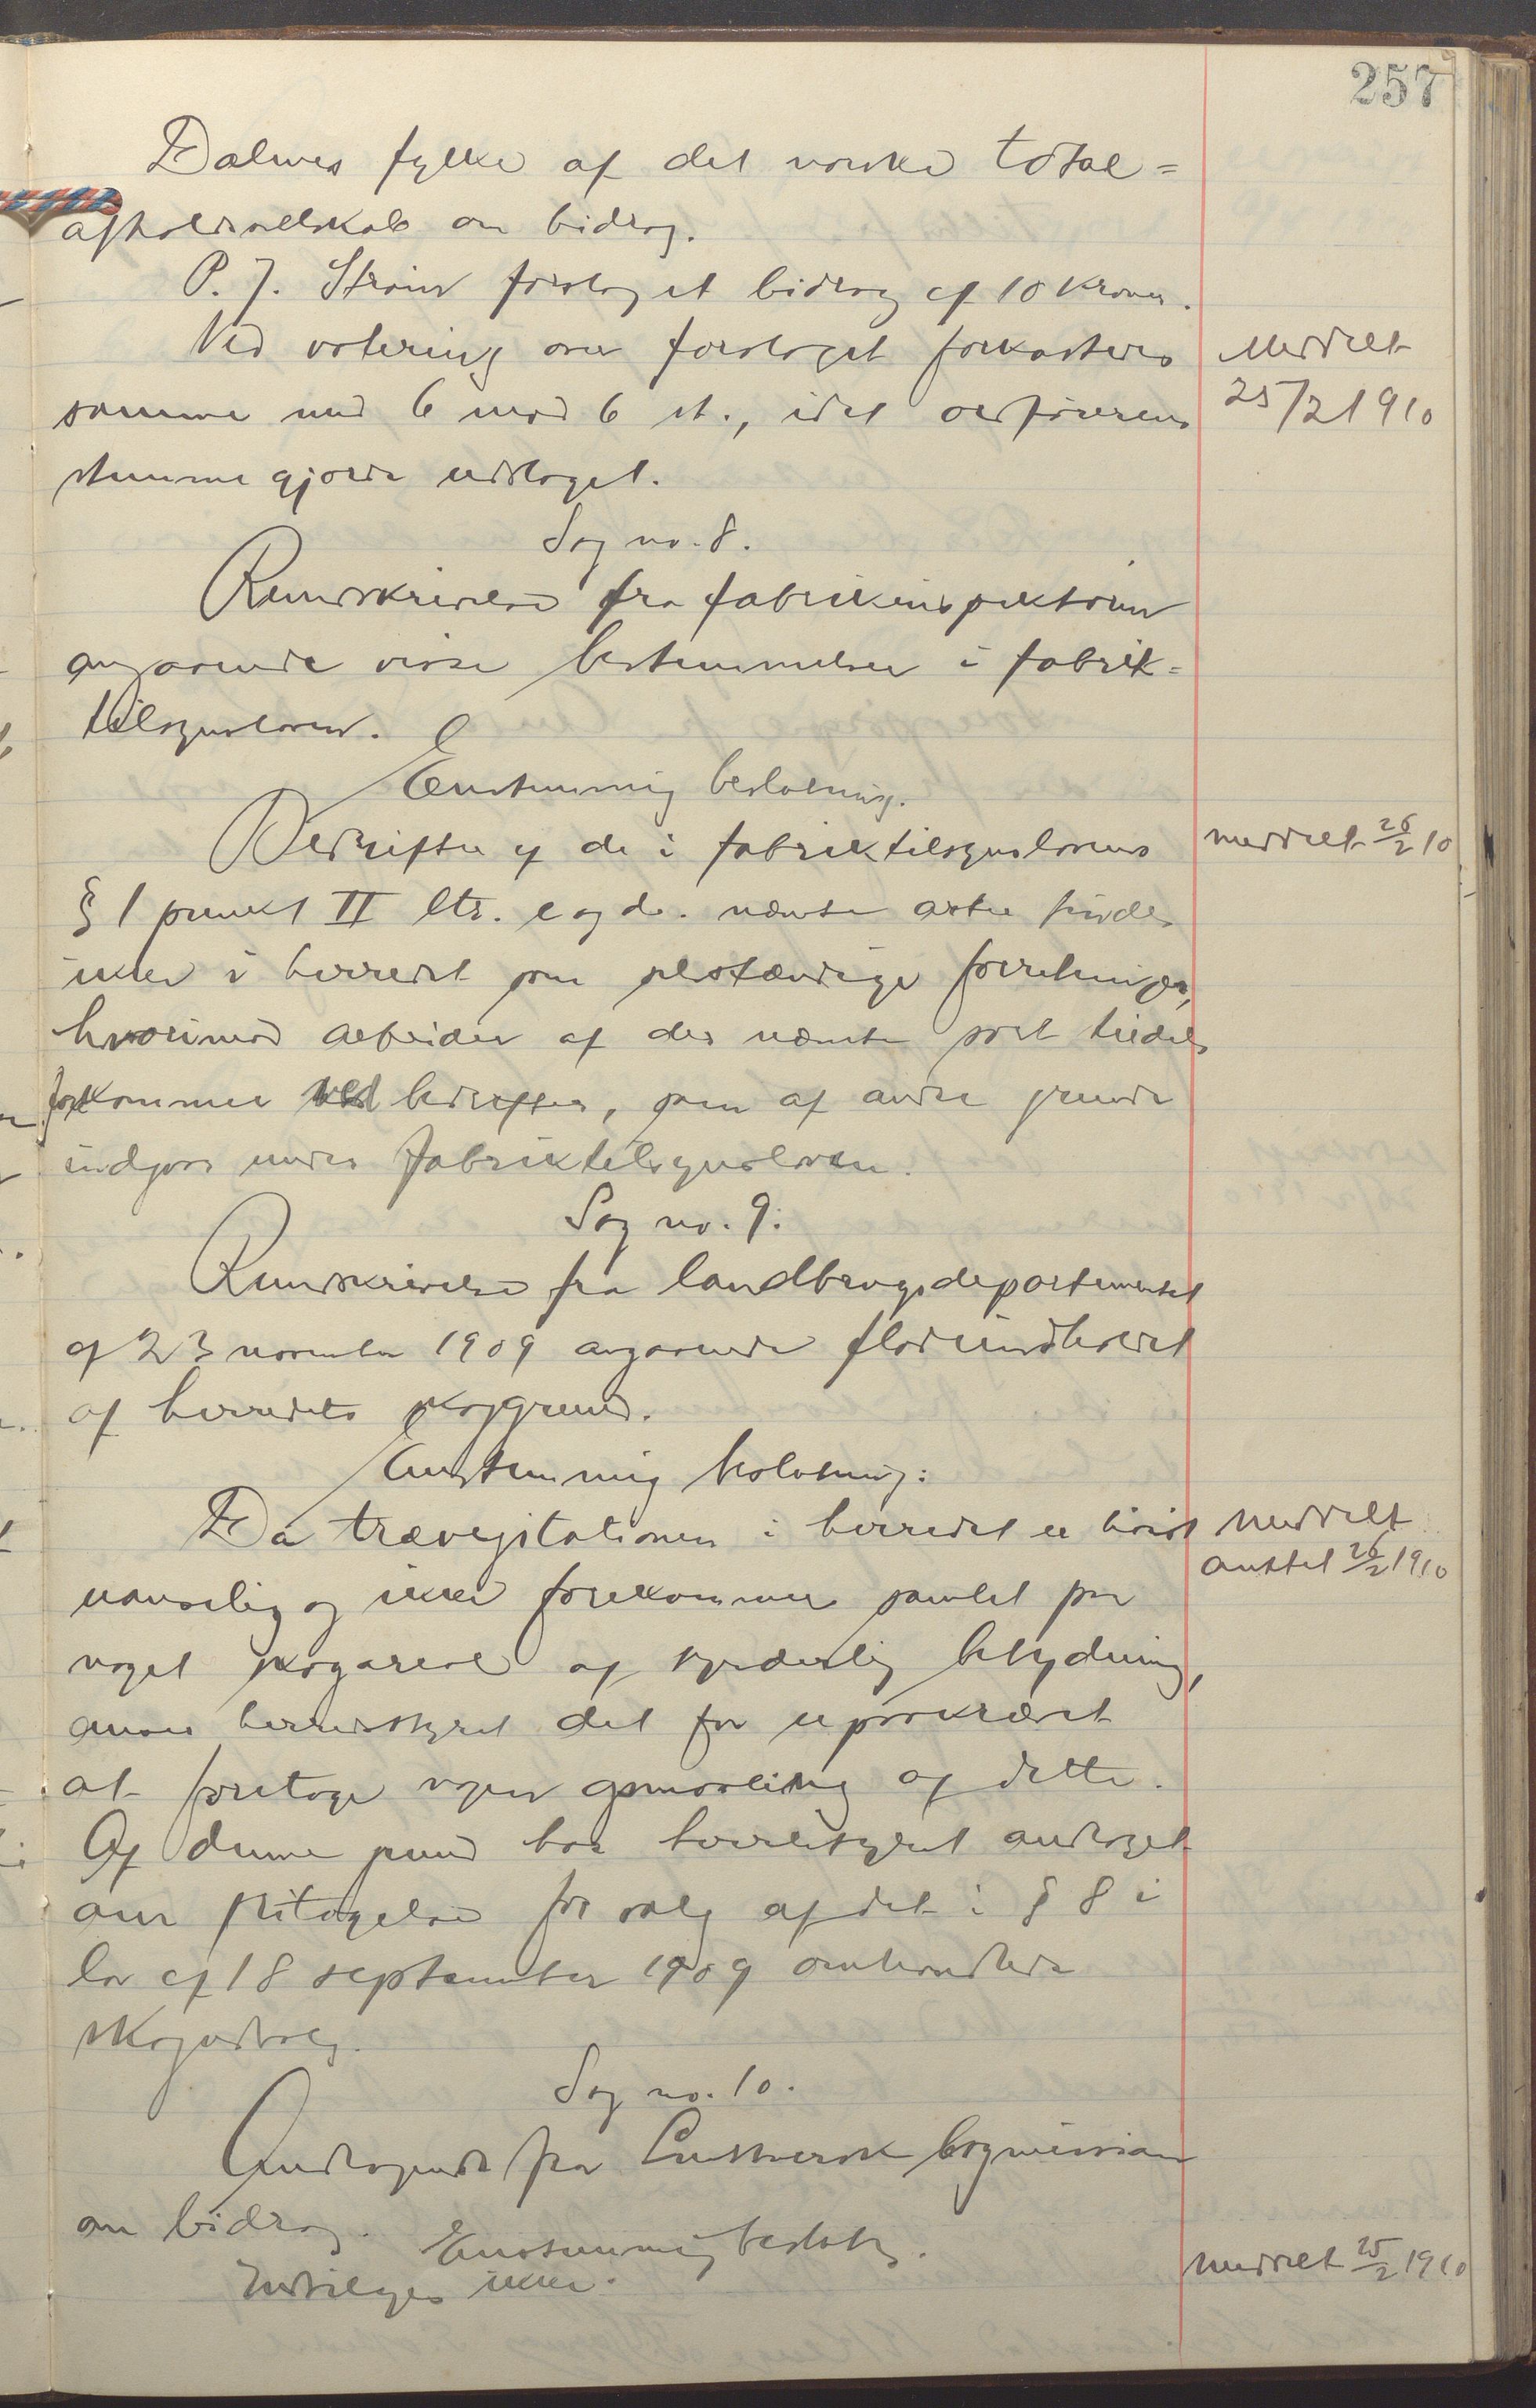 257
Dalernes fylke af det norske total=
afholdsselskab om bidrag.
P. J. Strøm foreslog et bidrag af 10 kroner.
Ved votering over forslaget forkastedes
samme med 6 mod 6 st., idet ordførerens
stemme gjorde udslaget.
Meddelt
25/2 1910
Sag no. 8.
Rundskrivelse fra fabrikinspektøren
angaaende visse bestemmelser i fabrik=
tilsynsloven.
Enstemmig beslutning.
Bedrifter af de i fabriktilsynslovens
meddelt 26/2 10
§ 1 punkt II ltr. c og d. nævnte arter findes
ikke i herredet som selvstændige forretninger,
hvorimod arbeider af den nævnte sort tildels
forekommer ved bedrifter, som af andre grunde
indgaar under fabriktilsynsloven.
Sag no. 9.
Rundskrivelse fra landbrugsdepartementet
af 23 november 1909 angaaende fladeindholdet
af herredets skoggrund.
Enstemmig beslutning:
Da trævegitationen i herredet er høist
meddelt
amtet 26/2 1910
uanselig og ikke forekommer samlet paa
noget skogareal af synderlig betydning,
anser herredsstyret det for upaakrævet
at foretage nogen opmaaling af dette.
Af denne grund har herredsstyret andraget
om fritagelse for valg af det i § 8 i
lov af 18 september 1909 omhandlede
skogudvalg.
Sag no. 10.
Andragende fra Luthersk bogmission
om bidrag.
Enstemmig beslutn.
Indvilges ikke.
meddelt 25/2 1910